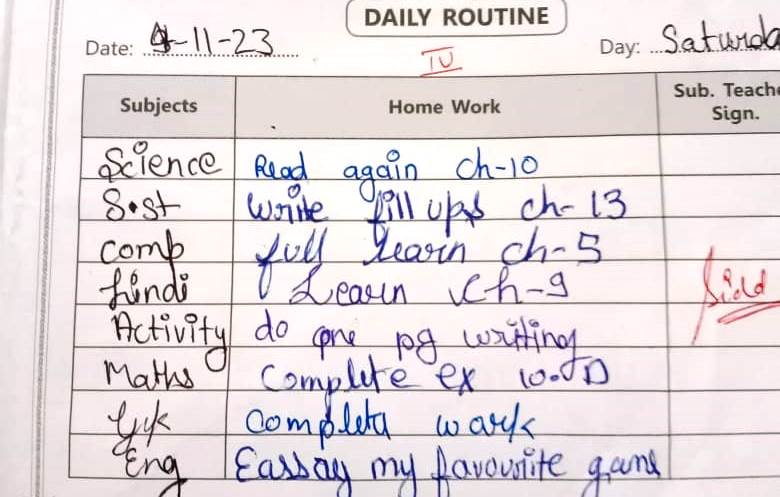 DAILY ROUTINE
Date: 4-11-23 Day: Saturda
IV
Subjects Home Work Sub. Teache Sign.
Science Read again ch-10
S.st Write fill ups ch-13
comp full learn ch-5
hindi Learn ch-9
Activity do one pg writing
Maths Complete ex 10.D
G.k Completa wark
Eng Eassay my favourite game